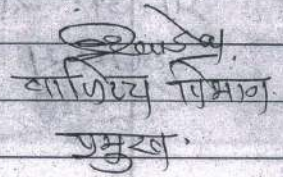 वाणिज्य विभाग
प्रमुख.